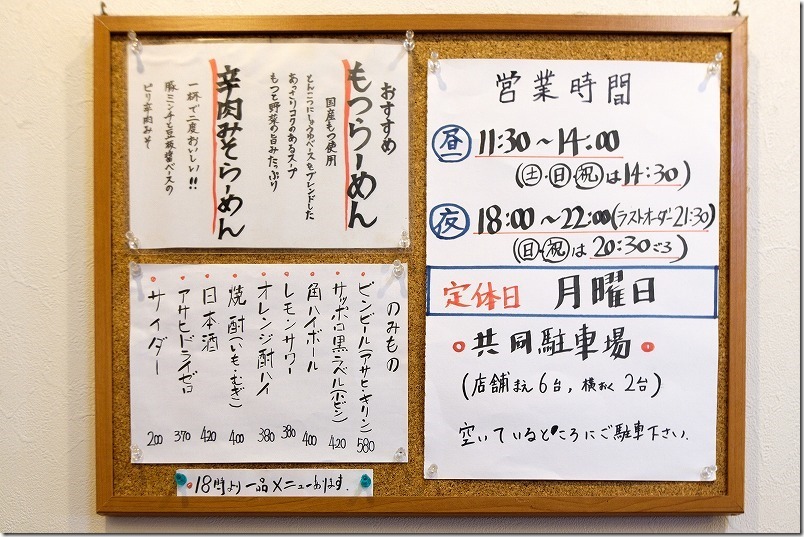 おすすめ
もつらーめん
国産もつ使用
とんこつにしょうゆベースをブレンドした
あっさりコクのあるスープ
もつと野菜の旨みたっぷり
辛肉みそらーめん
一杯で二度おいしい!!
豚ミンチと豆板醤ベースの
ピリ辛肉みそ
のみもの
ビンビール(アサヒ・キリン) 580
サッポロ黒ラベル(小ビン) 420
角ハイボール 400
レモンサワー 380
オレンジ酎ハイ 380
焼酎(いも・むぎ) 400
日本酒 420
アサヒドライゼロ 370
サイダー 200
18時より一品メニューあります.
営業時間
昼 11:30~14:00
(土・日・祝は14:30)
夜 18:00~22:00(ラストオーダー21:30)
(日・祝は20:30ごろ)
定休日 月曜日
共同駐車場
(店舗まえ6台, 横おく2台)
空いているところにご駐車下さい.